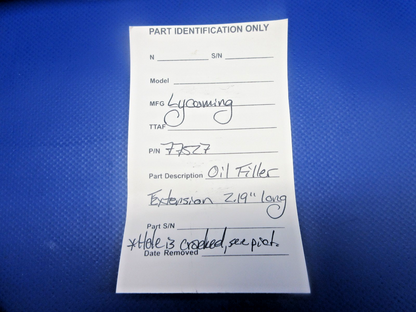 PART IDENTIFICATION ONLY
N S/N
Model
MFG Lycoming
TTAF
P/N 77527
Part Description Oil Filler
Extension 2.19" long
Part S/N
*Hole is cracked, see pics.
Date Removed